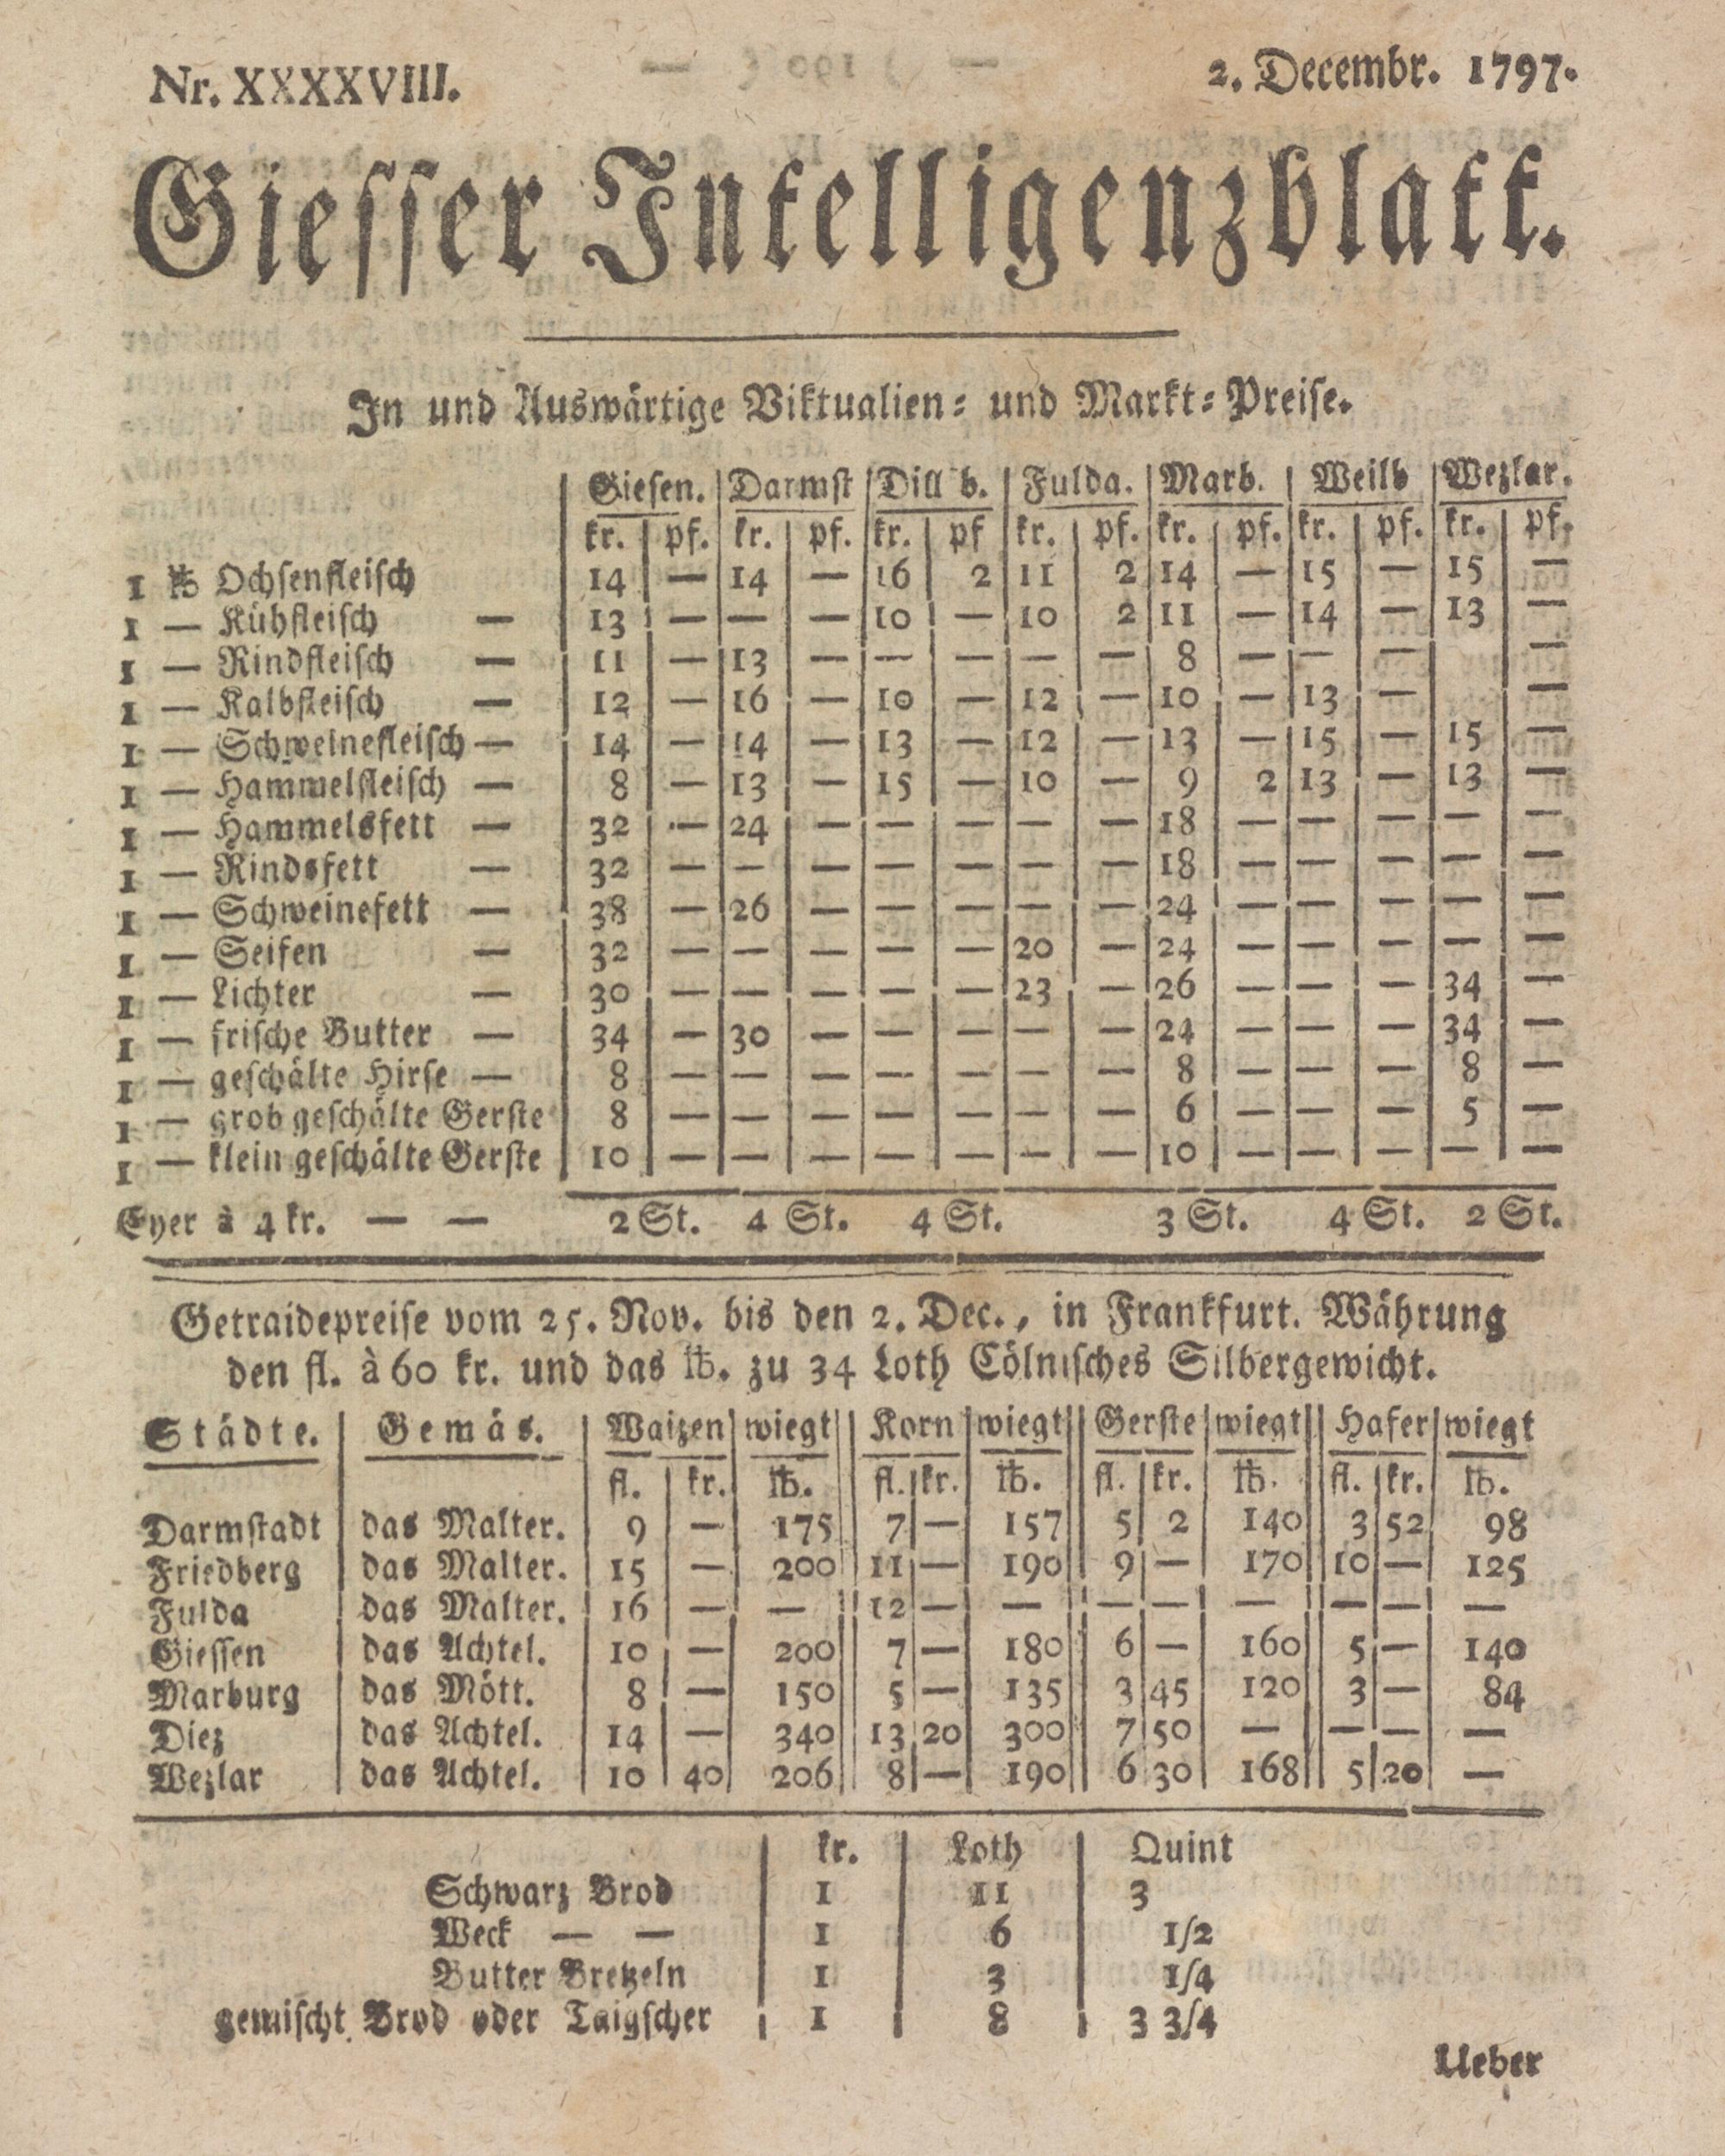 Nr. XXXXVIII. 2. Decembr. 1797.
Giesser Intelligenzblatt.
In und Auswärtige Viktualien- und Markt-Preise.
Giesen. Darmst Dill b. Fulda. Marb. Weilb Wezlar.
kr. pf. kr. pf. kr. pf kr. pf. kr. pf. kr. pf. kr. pf.
1 ℔ Ochsenfleisch 14 — 14 — 16 2 11 2 14 — 15 — 15 —
1 — Kühfleisch — 13 — — — 10 — 10 2 11 — 14 — 13 —
1 — Rindfleisch — 11 — 13 — — — — — 8 — — — —
1 — Kalbfleisch — 12 — 16 — 10 — 12 — 10 — 13 — —
1 — Schweinefleisch — 14 — 14 — 13 — 12 — 13 — 15 — 15 —
1 — Hammelfleisch — 8 — 13 — 15 — 10 — 9 2 13 — 13 —
1 — Hammelsfett — 32 — 24 — — — — — 18 — — — — —
1 — Rindsfett — 32 — — — — — — — 18 — — — — —
1 — Schweinefett — 38 — 26 — — — — — 24 — — — — —
1 — Seifen — 32 — — — — — 20 — 24 — — — — —
1 — Lichter — 30 — — — — — 23 — 26 — — — 34 —
1 — frische Butter — 34 — 30 — — — — — 24 — — — 34 —
1 — geschälte Hirse — 8 — — — — — — — 8 — — — 8 —
1 — grob geschälte Gerste 8 — — — — — — — 6 — — — 5 —
1 — klein geschälte Gerste 10 — — — — — — — 10 — — — — —
Eyer à 4 kr. — — 2 St. 4 St. 4 St. 3 St. 4 St. 2 St.
Getraidepreise vom 25. Nov. bis den 2. Dec., in Frankfurt. Währung
den fl. à 60 kr. und das ℔. zu 34 Loth Cölnisches Silbergewicht.
Städte. Gemäs. Waizen wiegt Korn wiegt Gerste wiegt Hafer wiegt
fl. kr. ℔. fl. kr. ℔. fl. kr. ℔. fl. kr. ℔.
Darmstadt das Malter. 9 — 175 7 — 157 5 2 140 3 52 98
Friedberg das Malter. 15 — 200 11 — 190 9 — 170 10 — 125
Fulda das Malter. 16 — — 12 — — — — — — — —
Giessen das Achtel. 10 — 200 7 — 180 6 — 160 5 — 140
Marburg das Mött. 8 — 150 5 — 135 3 45 120 3 — 84
Diez das Achtel. 14 — 340 13 20 300 7 50 — — — —
Wezlar das Achtel. 10 40 206 8 — 190 6 30 168 5 20 —
kr. Loth Quint
Schwarz Brod 1 11 3
Weck — — 1 6 1/2
Butter Bretzeln 1 3 1/4
gemischt Brod oder Taigscher 1 8 3 3/4
Ueber